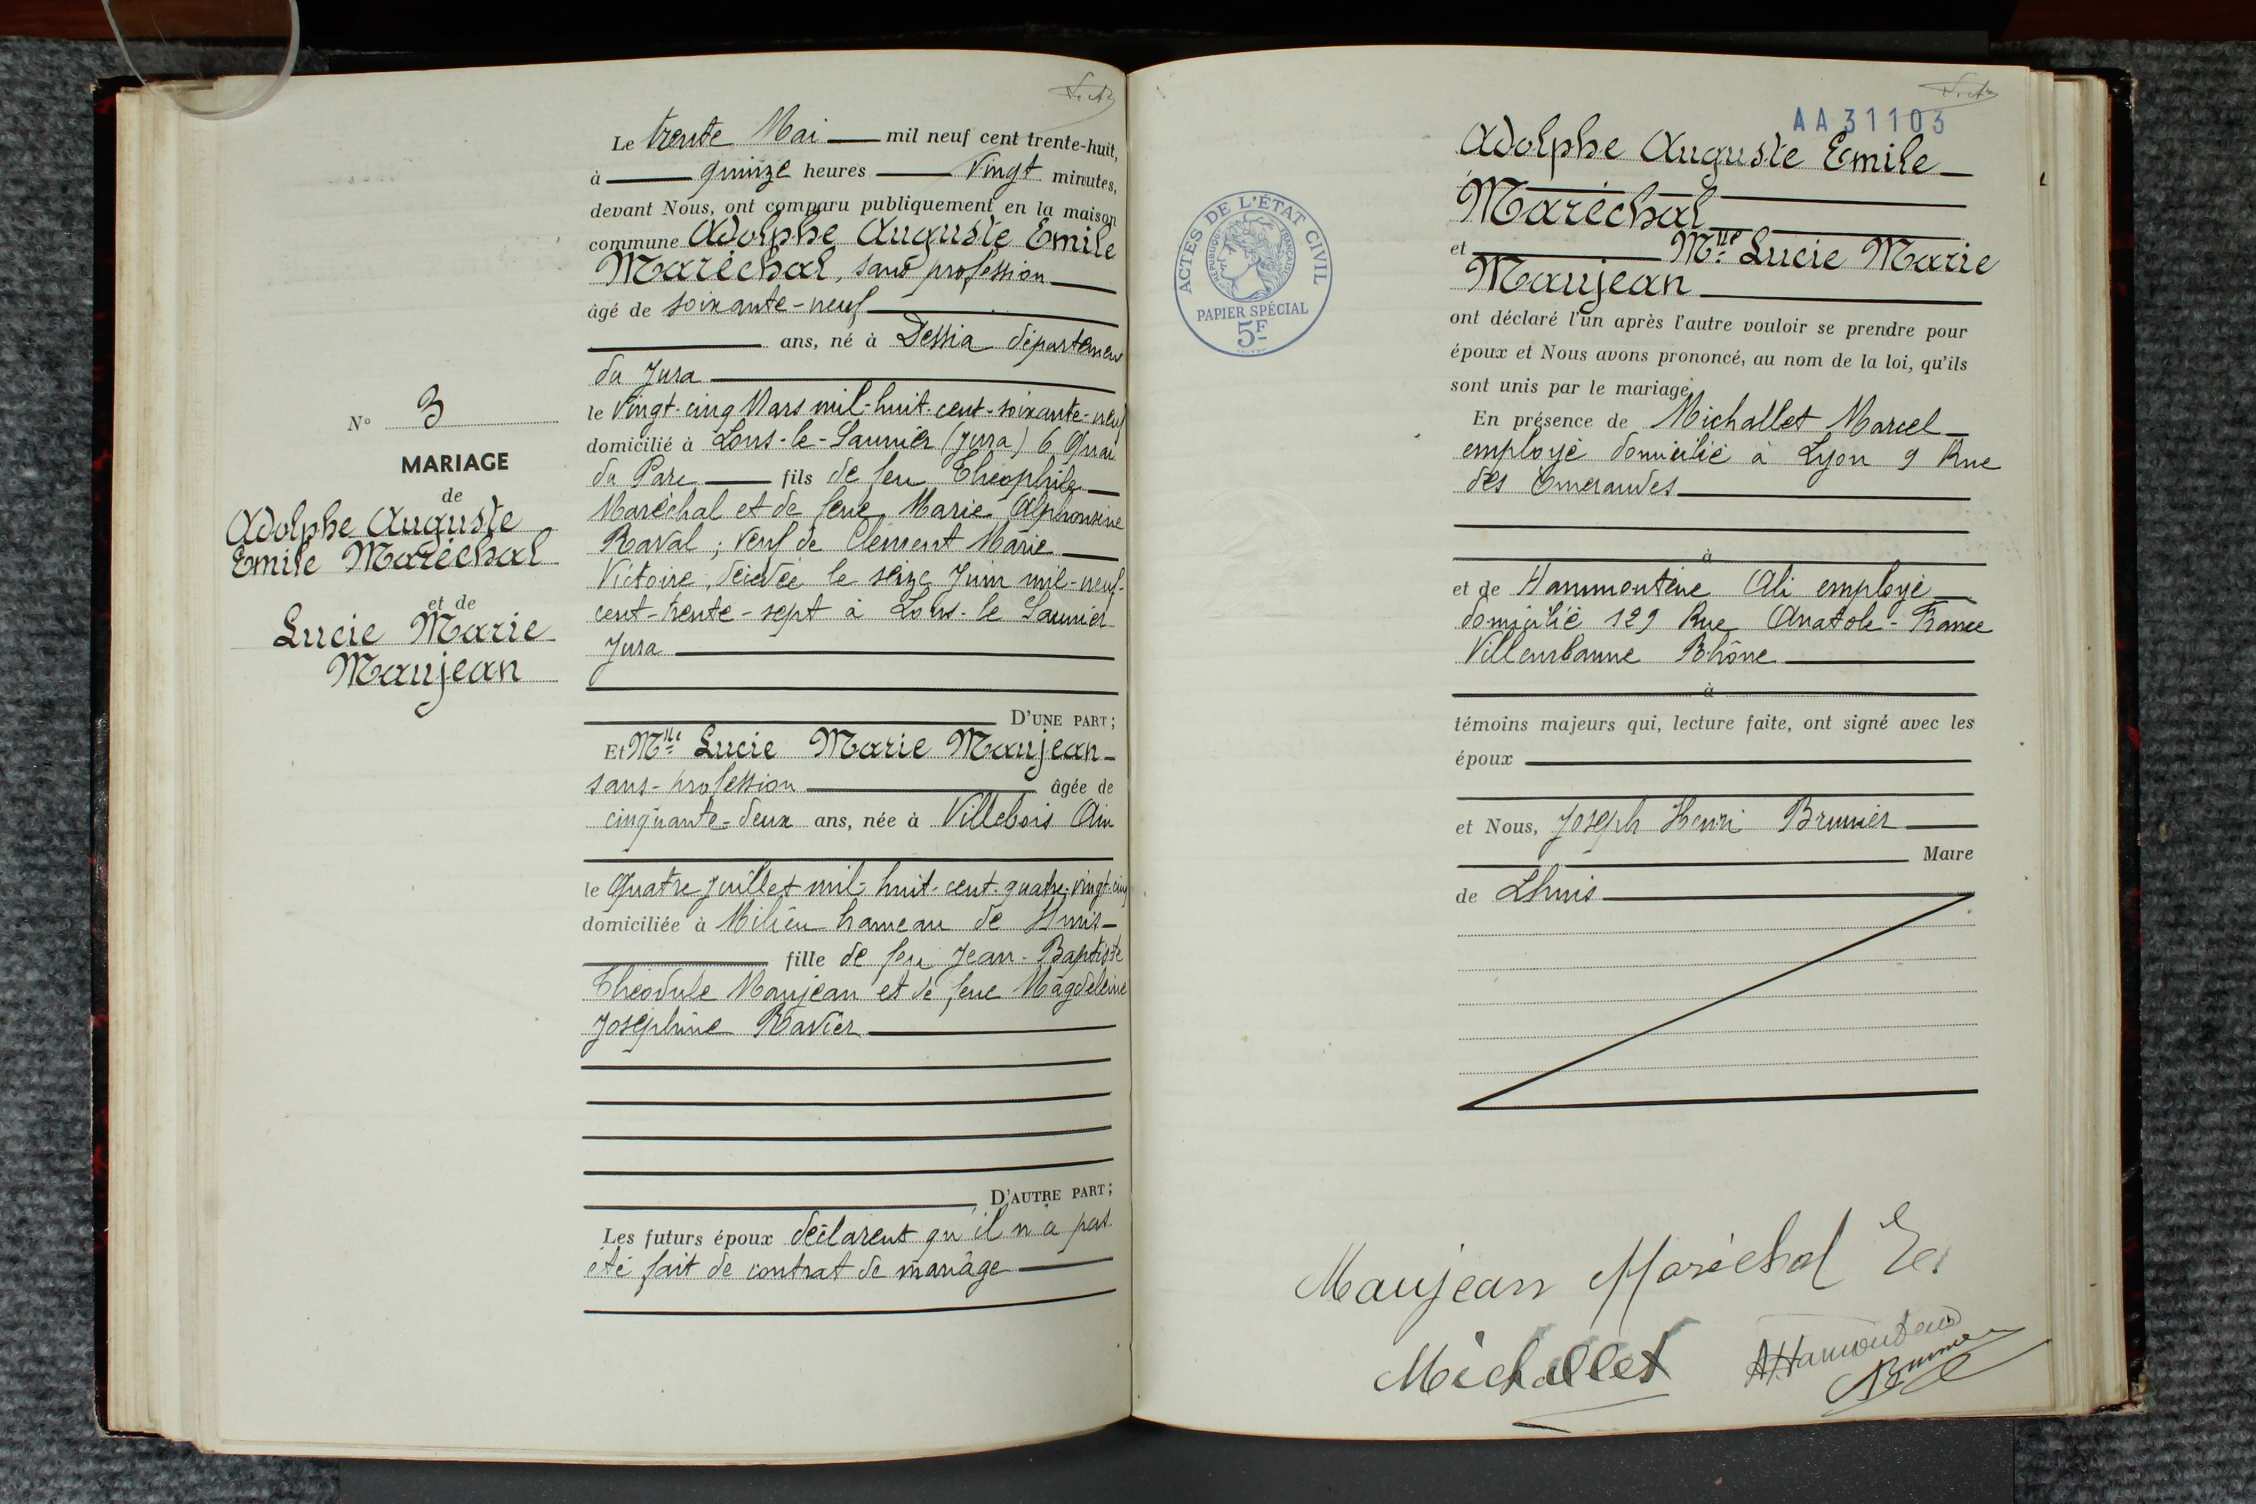 Le trente Mai mil neuf cent trente-huit,
à quinze heures vingt minutes,
devant Nous, ont comparu publiquement en la maison
commune Adolphe Auguste Emile
Maréchal, sans profession
âgé de soixante-neuf
ans, né à Dessia département
du Jura
le vingt-cinq Mars mil-huit-cent-soixante-neuf
domicilié à Lons-le-Saunier (Jura) 6 Quai
du Parc fils de feu Théophile
Maréchal et de feue Marie Alphonsine
Raval ; veuf de Clément Marie
Victoire, décédée le seize Juin mil-neuf-
cent-trente-sept à Lons-le Saunier
Jura
D'UNE PART ;
Et Mlle Lucie Marie Maujean
sans-profession âgée de
cinquante-deux ans, née à Villebois Ain
le Quatre Juillet mil-huit-cent-quatre-vingt-cinq
domiciliée à Milieu hameau de Lhuis
fille de feu Jean-Baptiste
Théodule Maujean et de feue Magdeleine
Joséphine Ravier
D'AUTRE PART ;
Les futurs époux déclarent qu'il n'a pas
été fait de contrat de mariage
N° 3
MARIAGE
de
Adolphe Auguste
Emile Maréchal
et de
Lucie Marie
Maujean
AA31103
Adolphe Auguste Emile
Maréchal
et Mlle Lucie Marie
Maujean
ont déclaré l'un après l'autre vouloir se prendre pour
époux et Nous avons prononcé, au nom de la loi, qu'ils
sont unis par le mariage.
En présence de Michallet Marcel
employé domicilié à Lyon 9 Rue
des Emeraudes
à
et de Hammoutène Ali employé
domicilié 129 Rue Anatole-France
Villeurbanne Rhône
à
témoins majeurs qui, lecture faite, ont signé avec les
époux
et Nous, Joseph Henri Brunier
Maire
de Lhuis
ACTES DE L'ÉTAT CIVIL
RÉPUBLIQUE FRANÇAISE
PAPIER SPÉCIAL
5F
Maujean Maréchal E.
Michallet
AHamoutene
Brunier